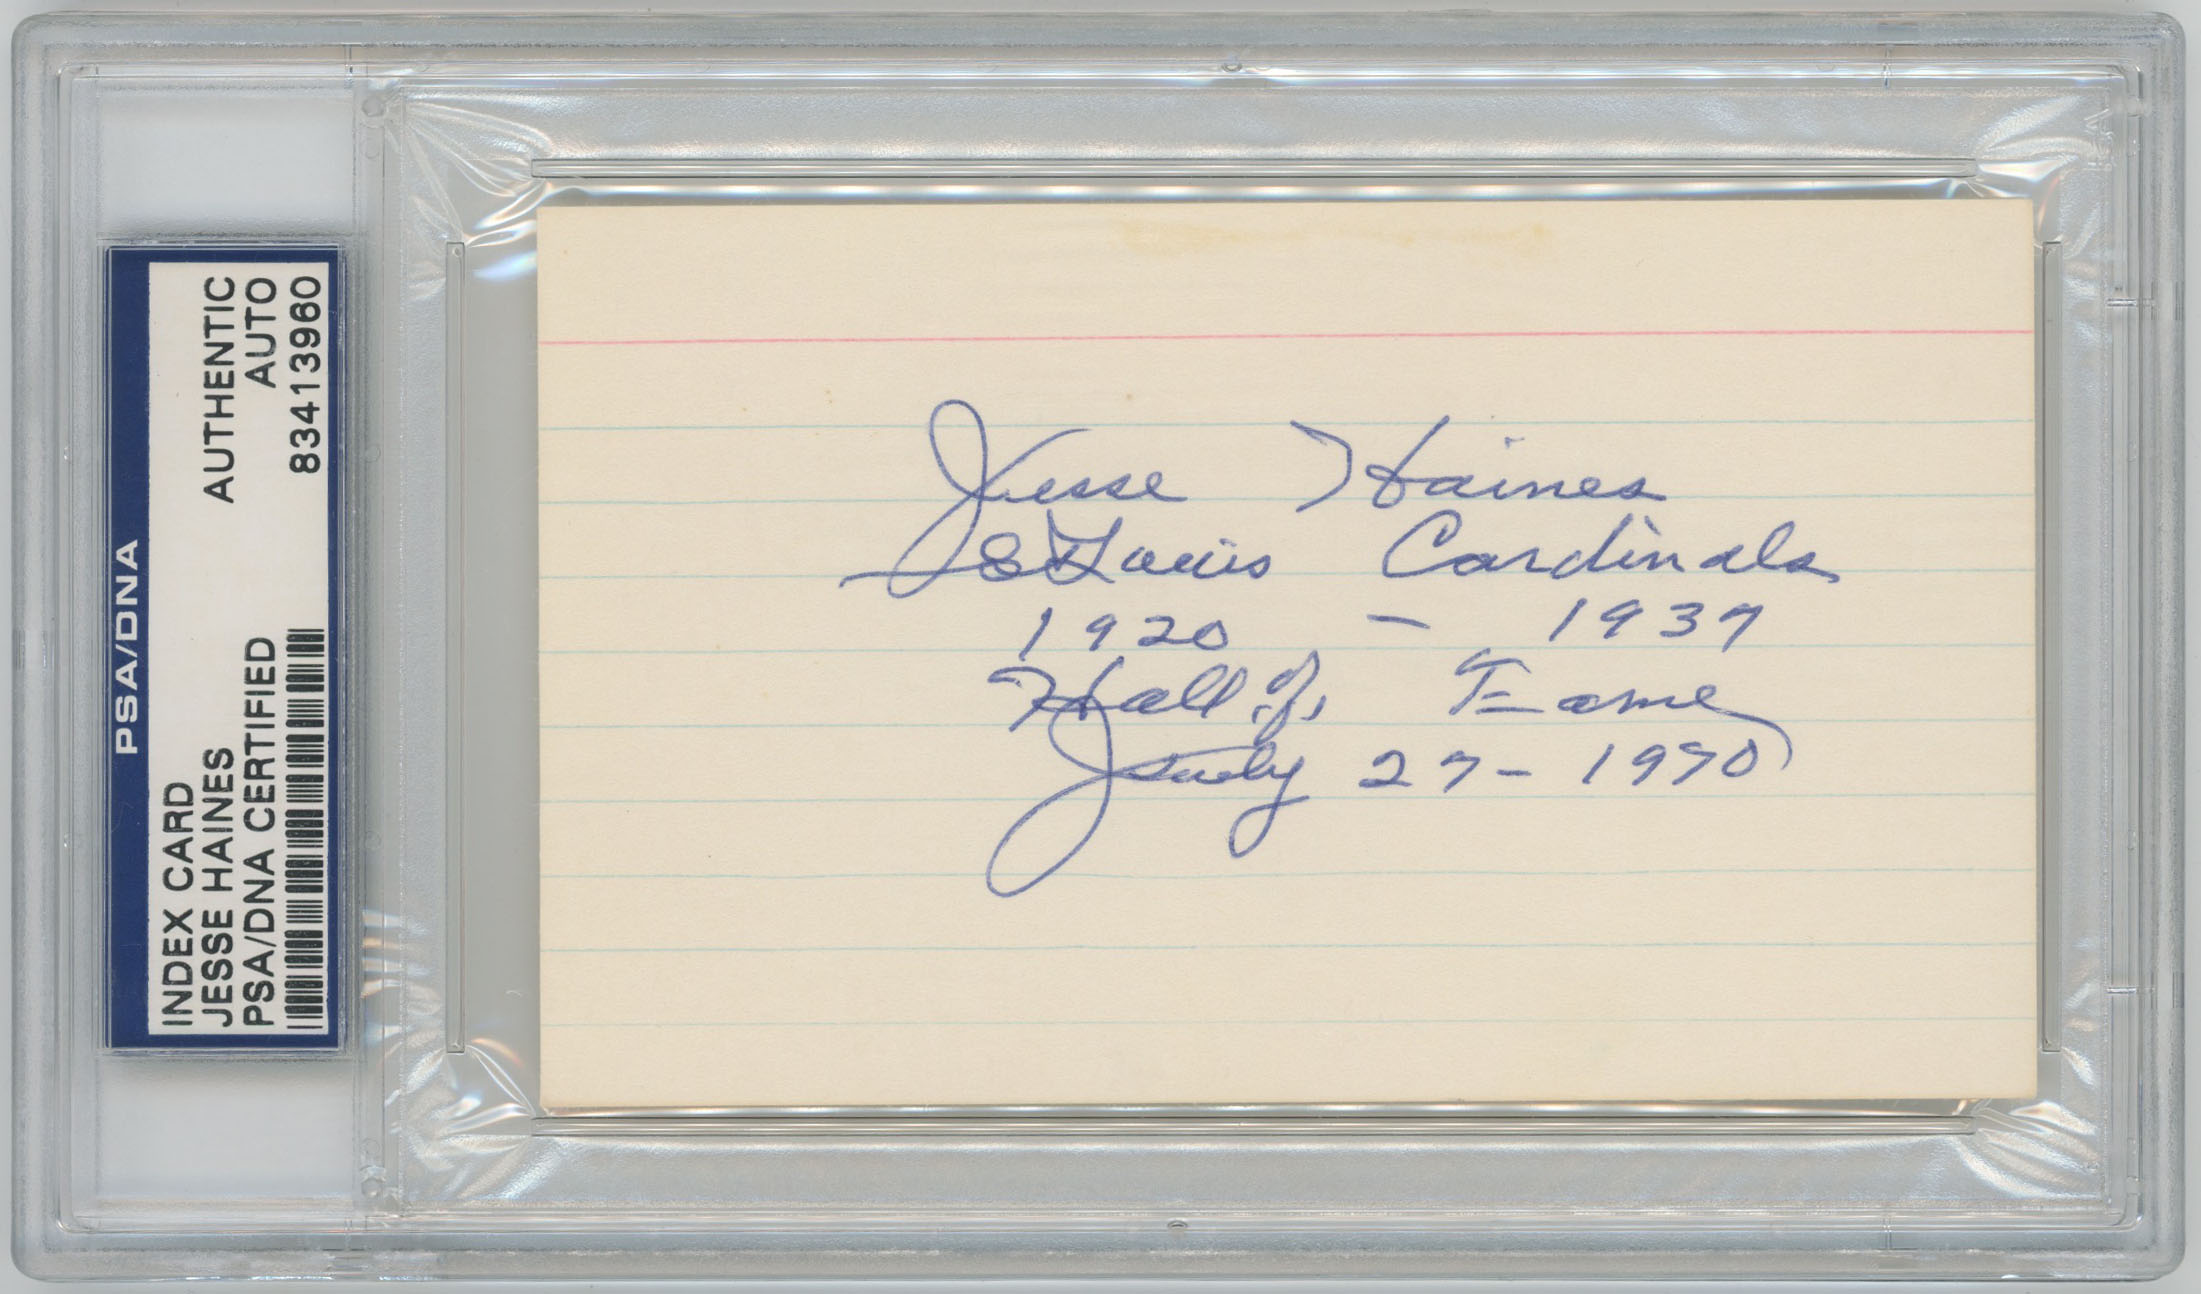 PSA/DNA
INDEX CARD
AUTHENTIC
JESSE HAINES
AUTO
PSA/DNA CERTIFIED
83413960
Jesse Haines
St Louis Cardinals
1920 - 1937
Hall of Fame
July 27-1970